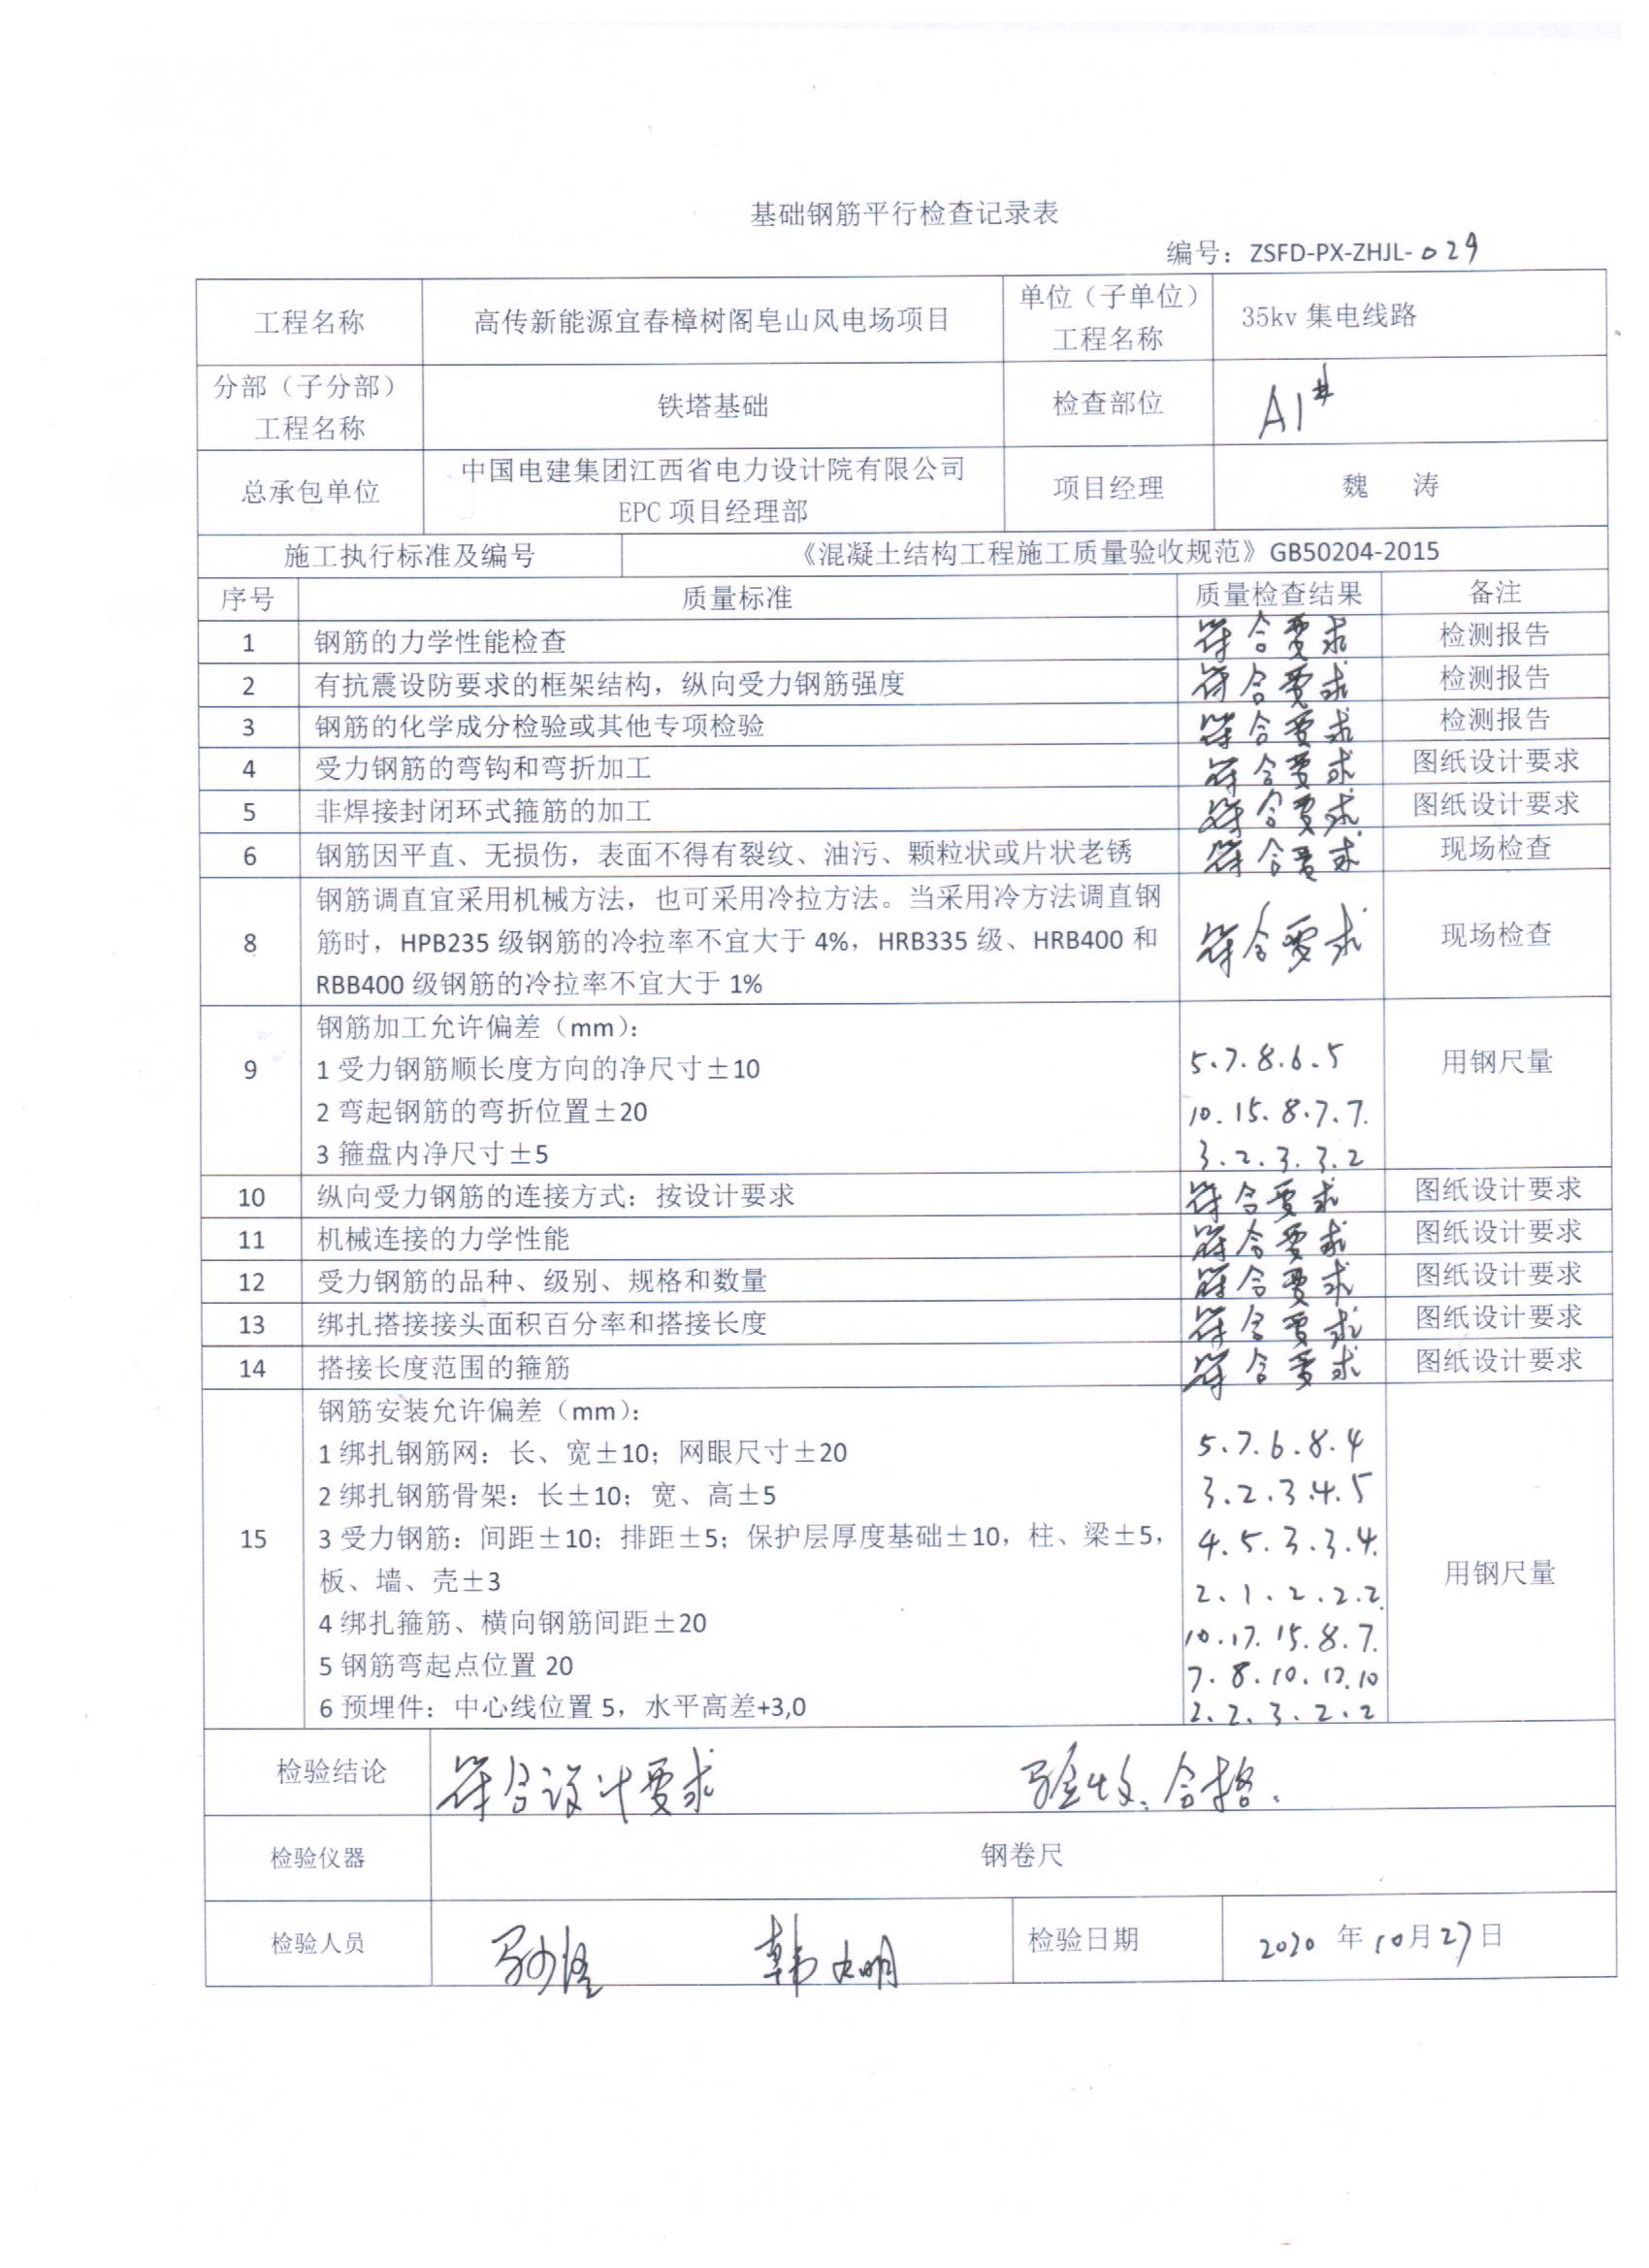 基础钢筋平行检查记录表
编号：ZSFD-PX-ZHJL-029
工程名称 高传新能源宜春樟树阁皂山风电场项目 单位（子单位）工程名称 35kv 集电线路
分部（子分部）工程名称 铁塔基础 检查部位 A1#
总承包单位 中国电建集团江西省电力设计院有限公司 EPC 项目经理部 项目经理 魏 涛
施工执行标准及编号 《混凝土结构工程施工质量验收规范》GB50204-2015
序号 质量标准 质量检查结果 备注
1 钢筋的力学性能检查 符合要求 检测报告
2 有抗震设防要求的框架结构，纵向受力钢筋强度 符合要求 检测报告
3 钢筋的化学成分检验或其他专项检验 符合要求 检测报告
4 受力钢筋的弯钩和弯折加工 符合要求 图纸设计要求
5 非焊接封闭环式箍筋的加工 符合要求 图纸设计要求
6 钢筋因平直、无损伤，表面不得有裂纹、油污、颗粒状或片状老锈 符合要求 现场检查
钢筋调直宜采用机械方法，也可采用冷拉方法。当采用冷方法调直钢
8 筋时，HPB235 级钢筋的冷拉率不宜大于 4%，HRB335 级、HRB400 和 符合要求 现场检查
RBB400 级钢筋的冷拉率不宜大于 1%
钢筋加工允许偏差（mm）：
9 1 受力钢筋顺长度方向的净尺寸±10 5.7.8.6.5 用钢尺量
2 弯起钢筋的弯折位置±20 10.15.8.7.7.
3 箍盘内净尺寸±5 3.2.3.3.2
10 纵向受力钢筋的连接方式：按设计要求 符合要求 图纸设计要求
11 机械连接的力学性能 符合要求 图纸设计要求
12 受力钢筋的品种、级别、规格和数量 符合要求 图纸设计要求
13 绑扎搭接接头面积百分率和搭接长度 符合要求 图纸设计要求
14 搭接长度范围的箍筋 符合要求 图纸设计要求
钢筋安装允许偏差（mm）：
1 绑扎钢筋网：长、宽±10；网眼尺寸±20 5.7.6.8.4
2 绑扎钢筋骨架：长±10；宽、高±5 3.2.3.4.5
15 3 受力钢筋：间距±10；排距±5；保护层厚度基础±10，柱、梁±5， 4.5.3.3.4. 用钢尺量
板、墙、壳±3 2.1.2.2.2.
4 绑扎箍筋、横向钢筋间距±20 10.17.15.8.7.
5 钢筋弯起点位置 20 7.8.10.12.10
6 预埋件：中心线位置 5，水平高差+3,0 2.2.3.2.2
检验结论 符合设计要求 验收合格.
检验仪器 钢卷尺
检验人员 韩文明 检验日期 2020 年 10 月 27 日